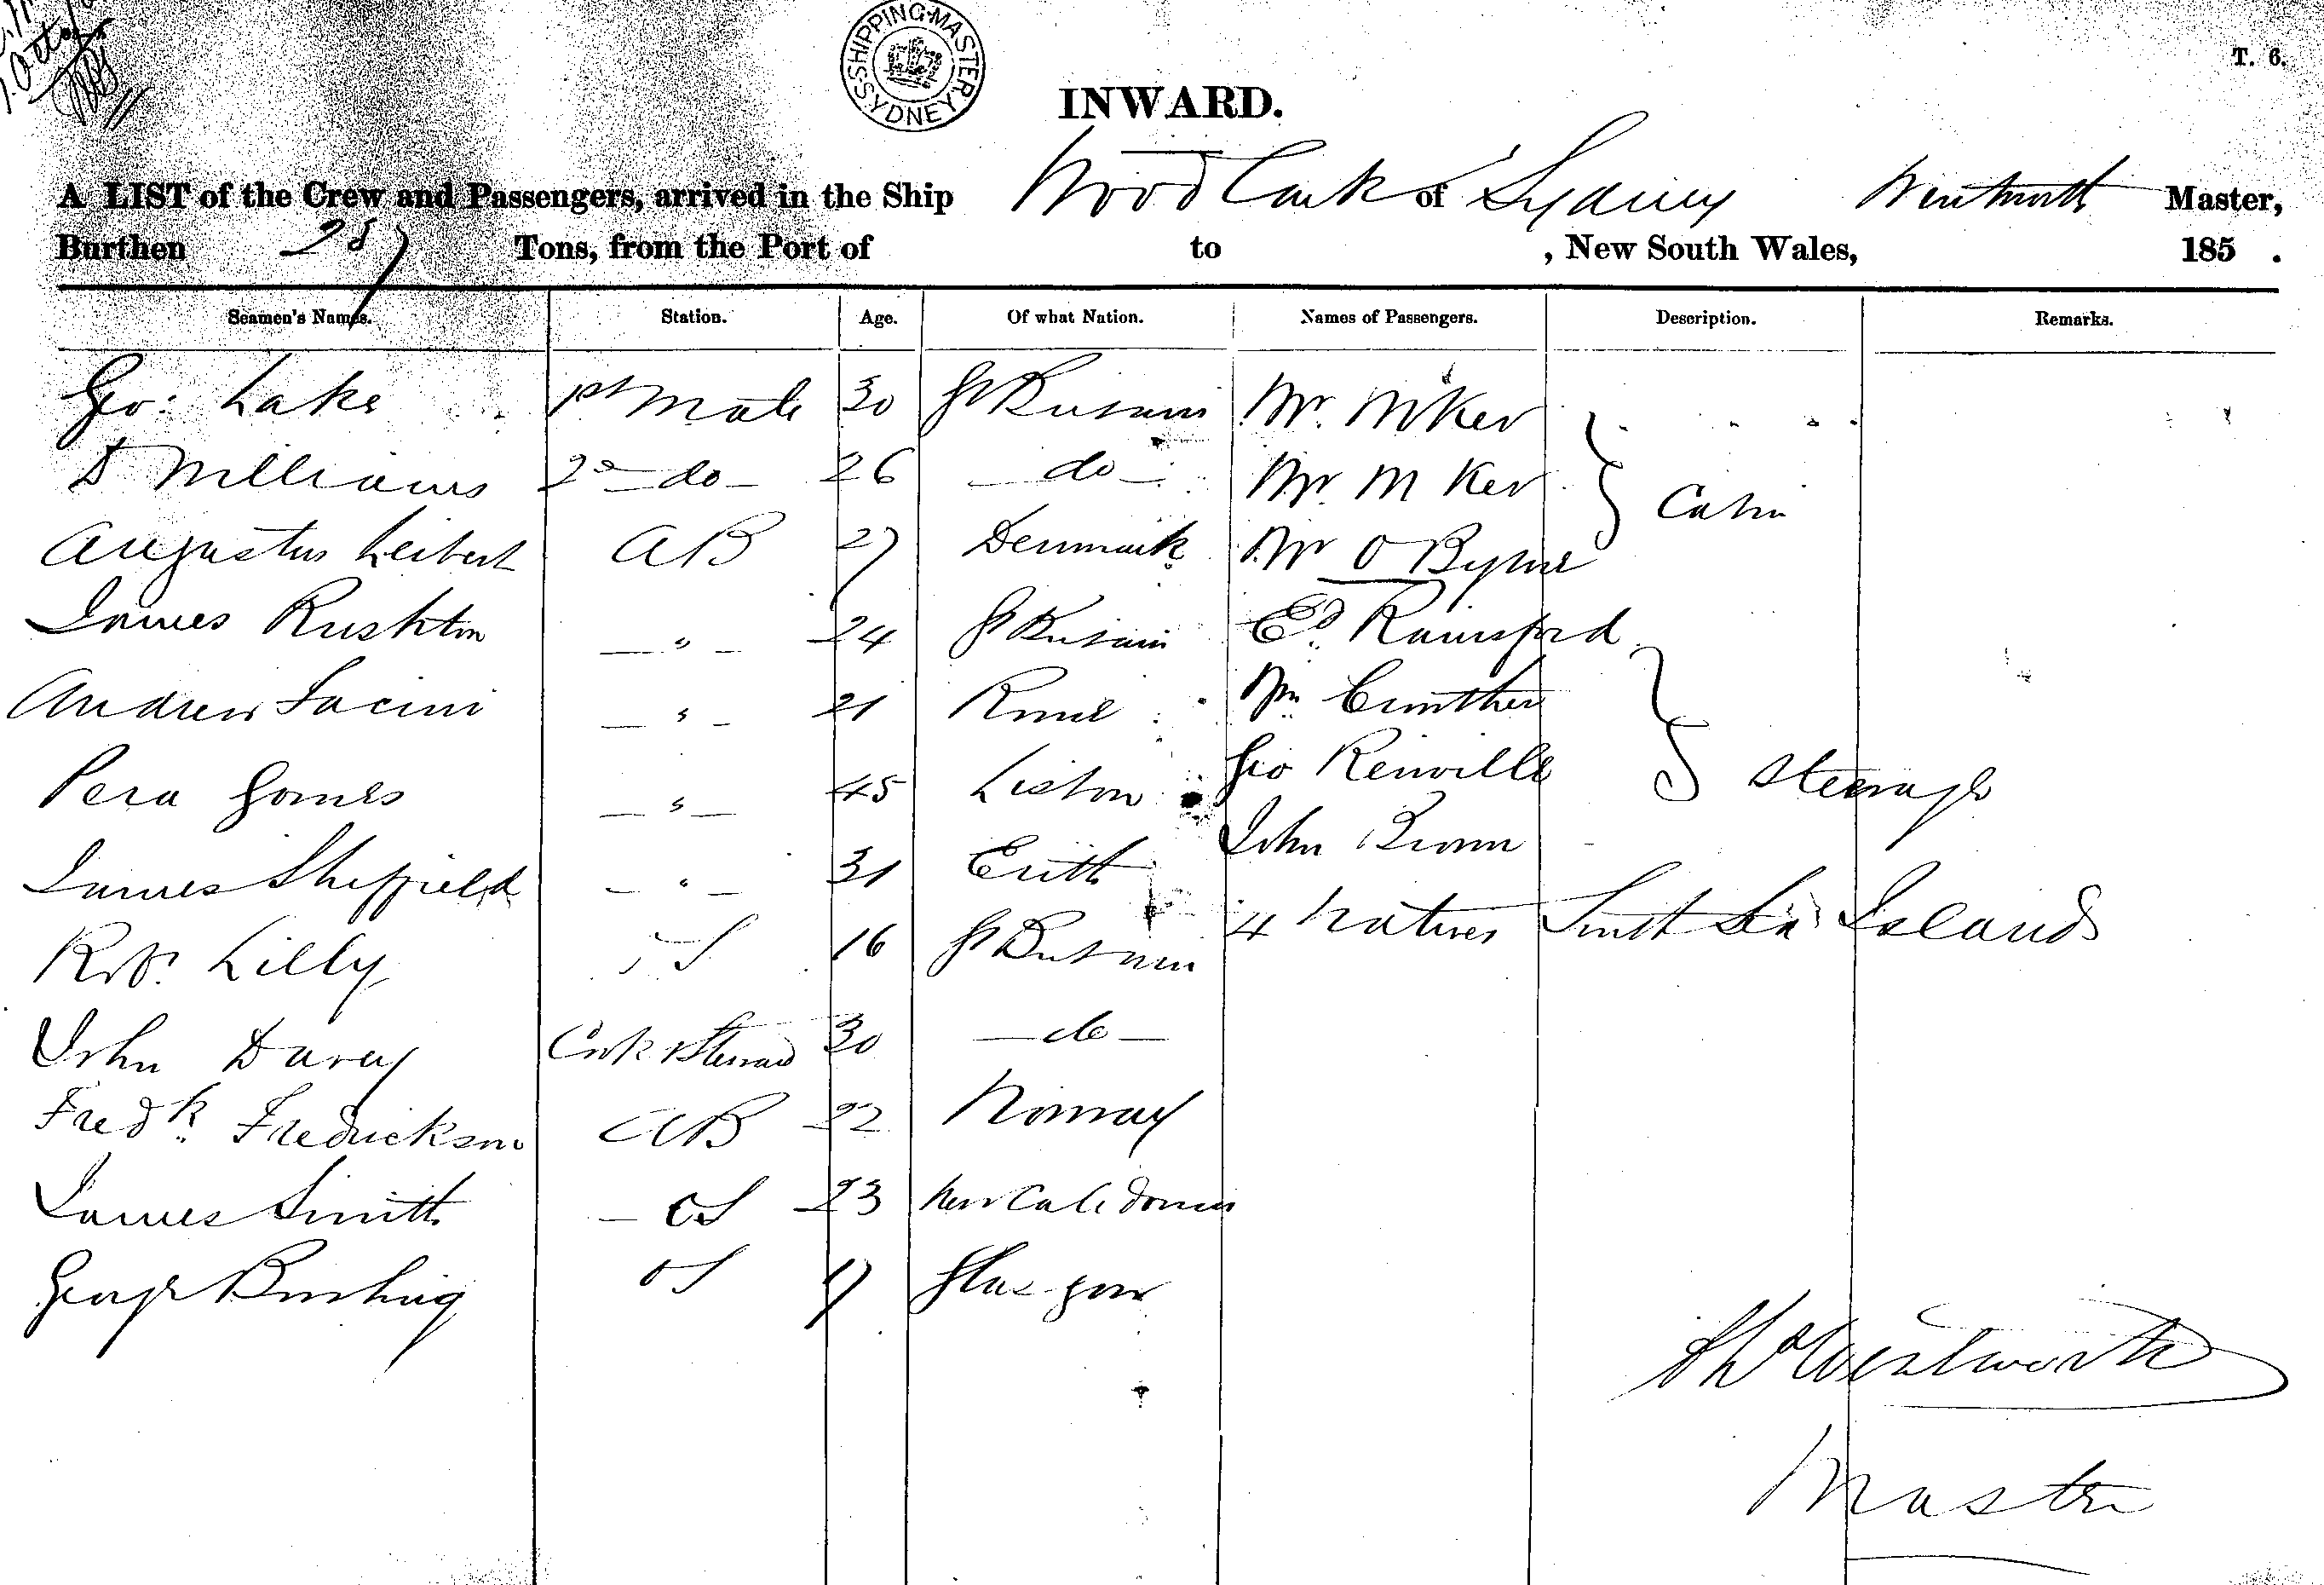 SHIPPING MASTER SYDNEY
T. 6.
INWARD.
A LIST of the Crew and Passengers, arrived in the Ship Woodlark of Sydney Wentworth Master,
Burthen 287 Tons, from the Port of to , New South Wales, 185 .
Seamen's Names. Station. Age. Of what Nation. Names of Passengers. Description. Remarks.
Geo: Lake 1st Mate 30 Gt Britain Mr. Ker
D Williams 2nd do 26 do Mr. M Ker Cabin
Augustus Leibert AB 27 Denmark Mr O Byrne
James Rushton " 24 Gt Britain Ed Rainsford
Andrew Facini " 21 Rome Wm Gunther
Pera Gomes " 45 Lisbon Geo Renville Steerage
James Sheffield " 31 Erith John Brown
Robt. Lilly OS 16 Gt Britain 4 Natives South Sea Islands
John Davey Cook & Steward 30 do
Fredk. Fredrickson AB 22 Norway
James Smith OS 23 New Caledonia
George OS 17 Glasgow
Wentworth
Master